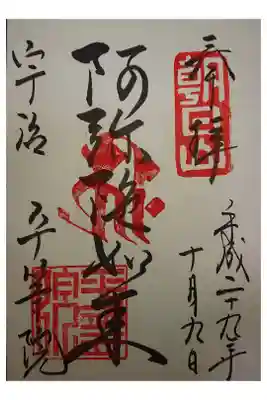 奉拝
平成二十九年
十月九日
阿弥陀如来
宇治 平等院